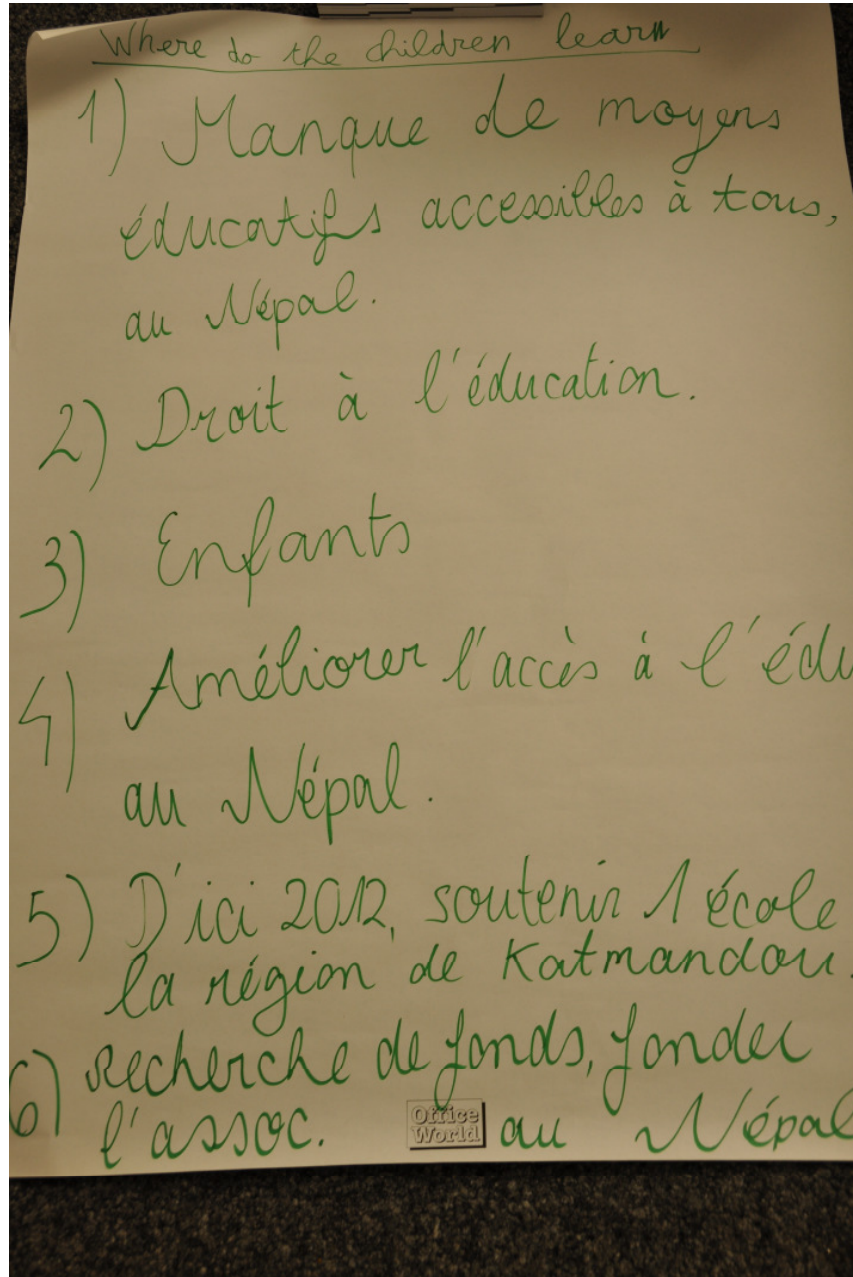 Where do the children learn
1) Manque de moyens
éducatifs accessibles à tous,
au Népal.
2) Droit à l'éducation.
3) Enfants
4) Améliorer l'accès à l'édu
au Népal.
5) D'ici 2012, soutenir 1 école
la région de Katmandou.
6) Recherche de fonds, fonder
l'assoc. au Népal
Office
World